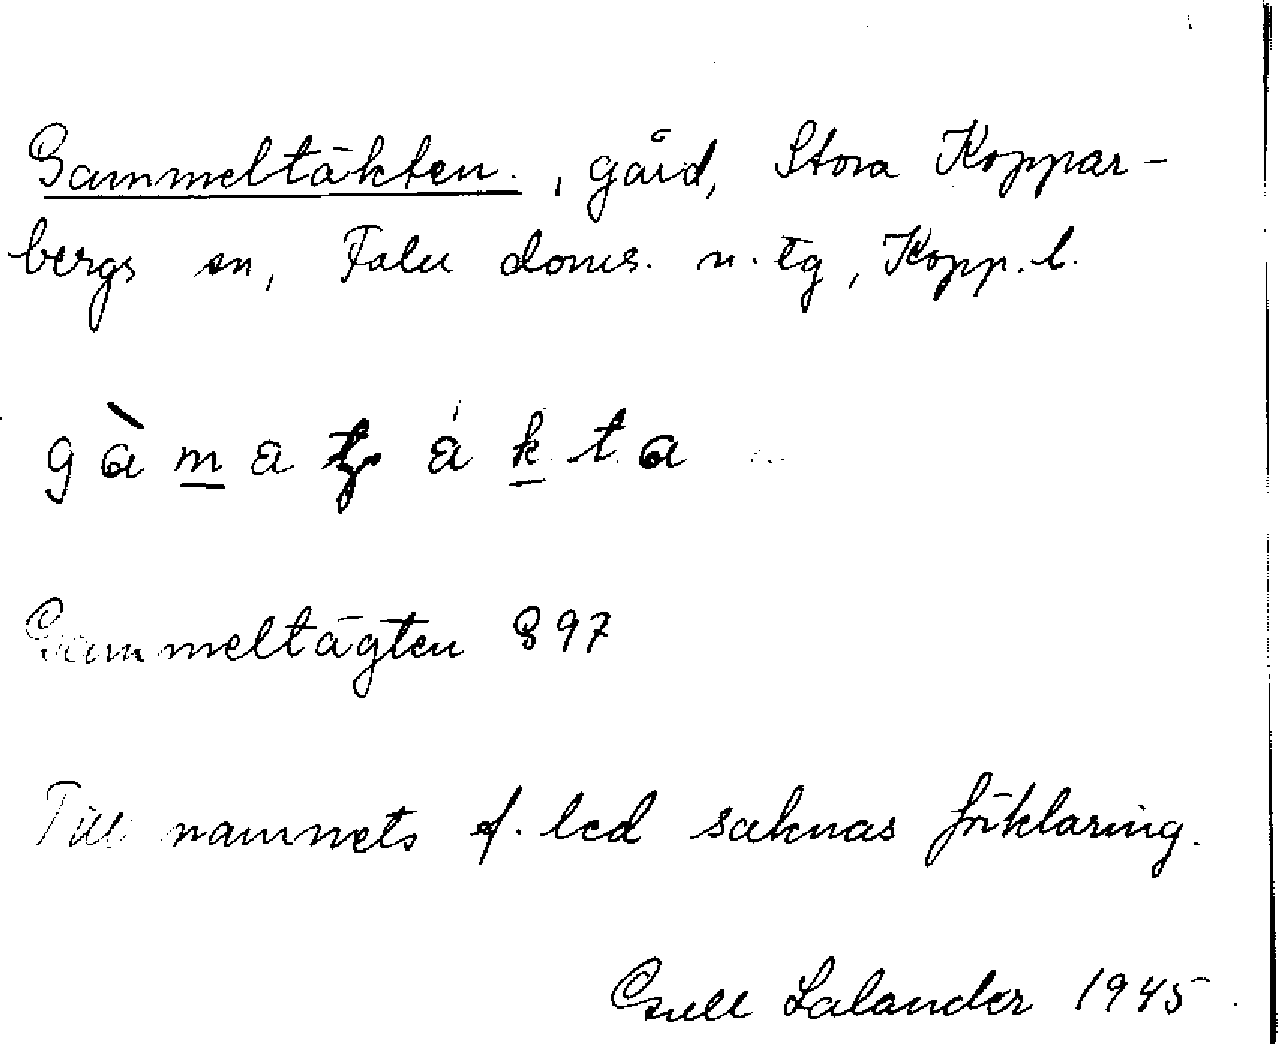 Gammeltäkten., gård, Stora Koppar-
bergs sn, Falu doms. n. tg, Kopp. l.
gàmatákta
Gammeltägten 897
Till namnets f. led saknas förklaring.
Gull Lalander 1945.